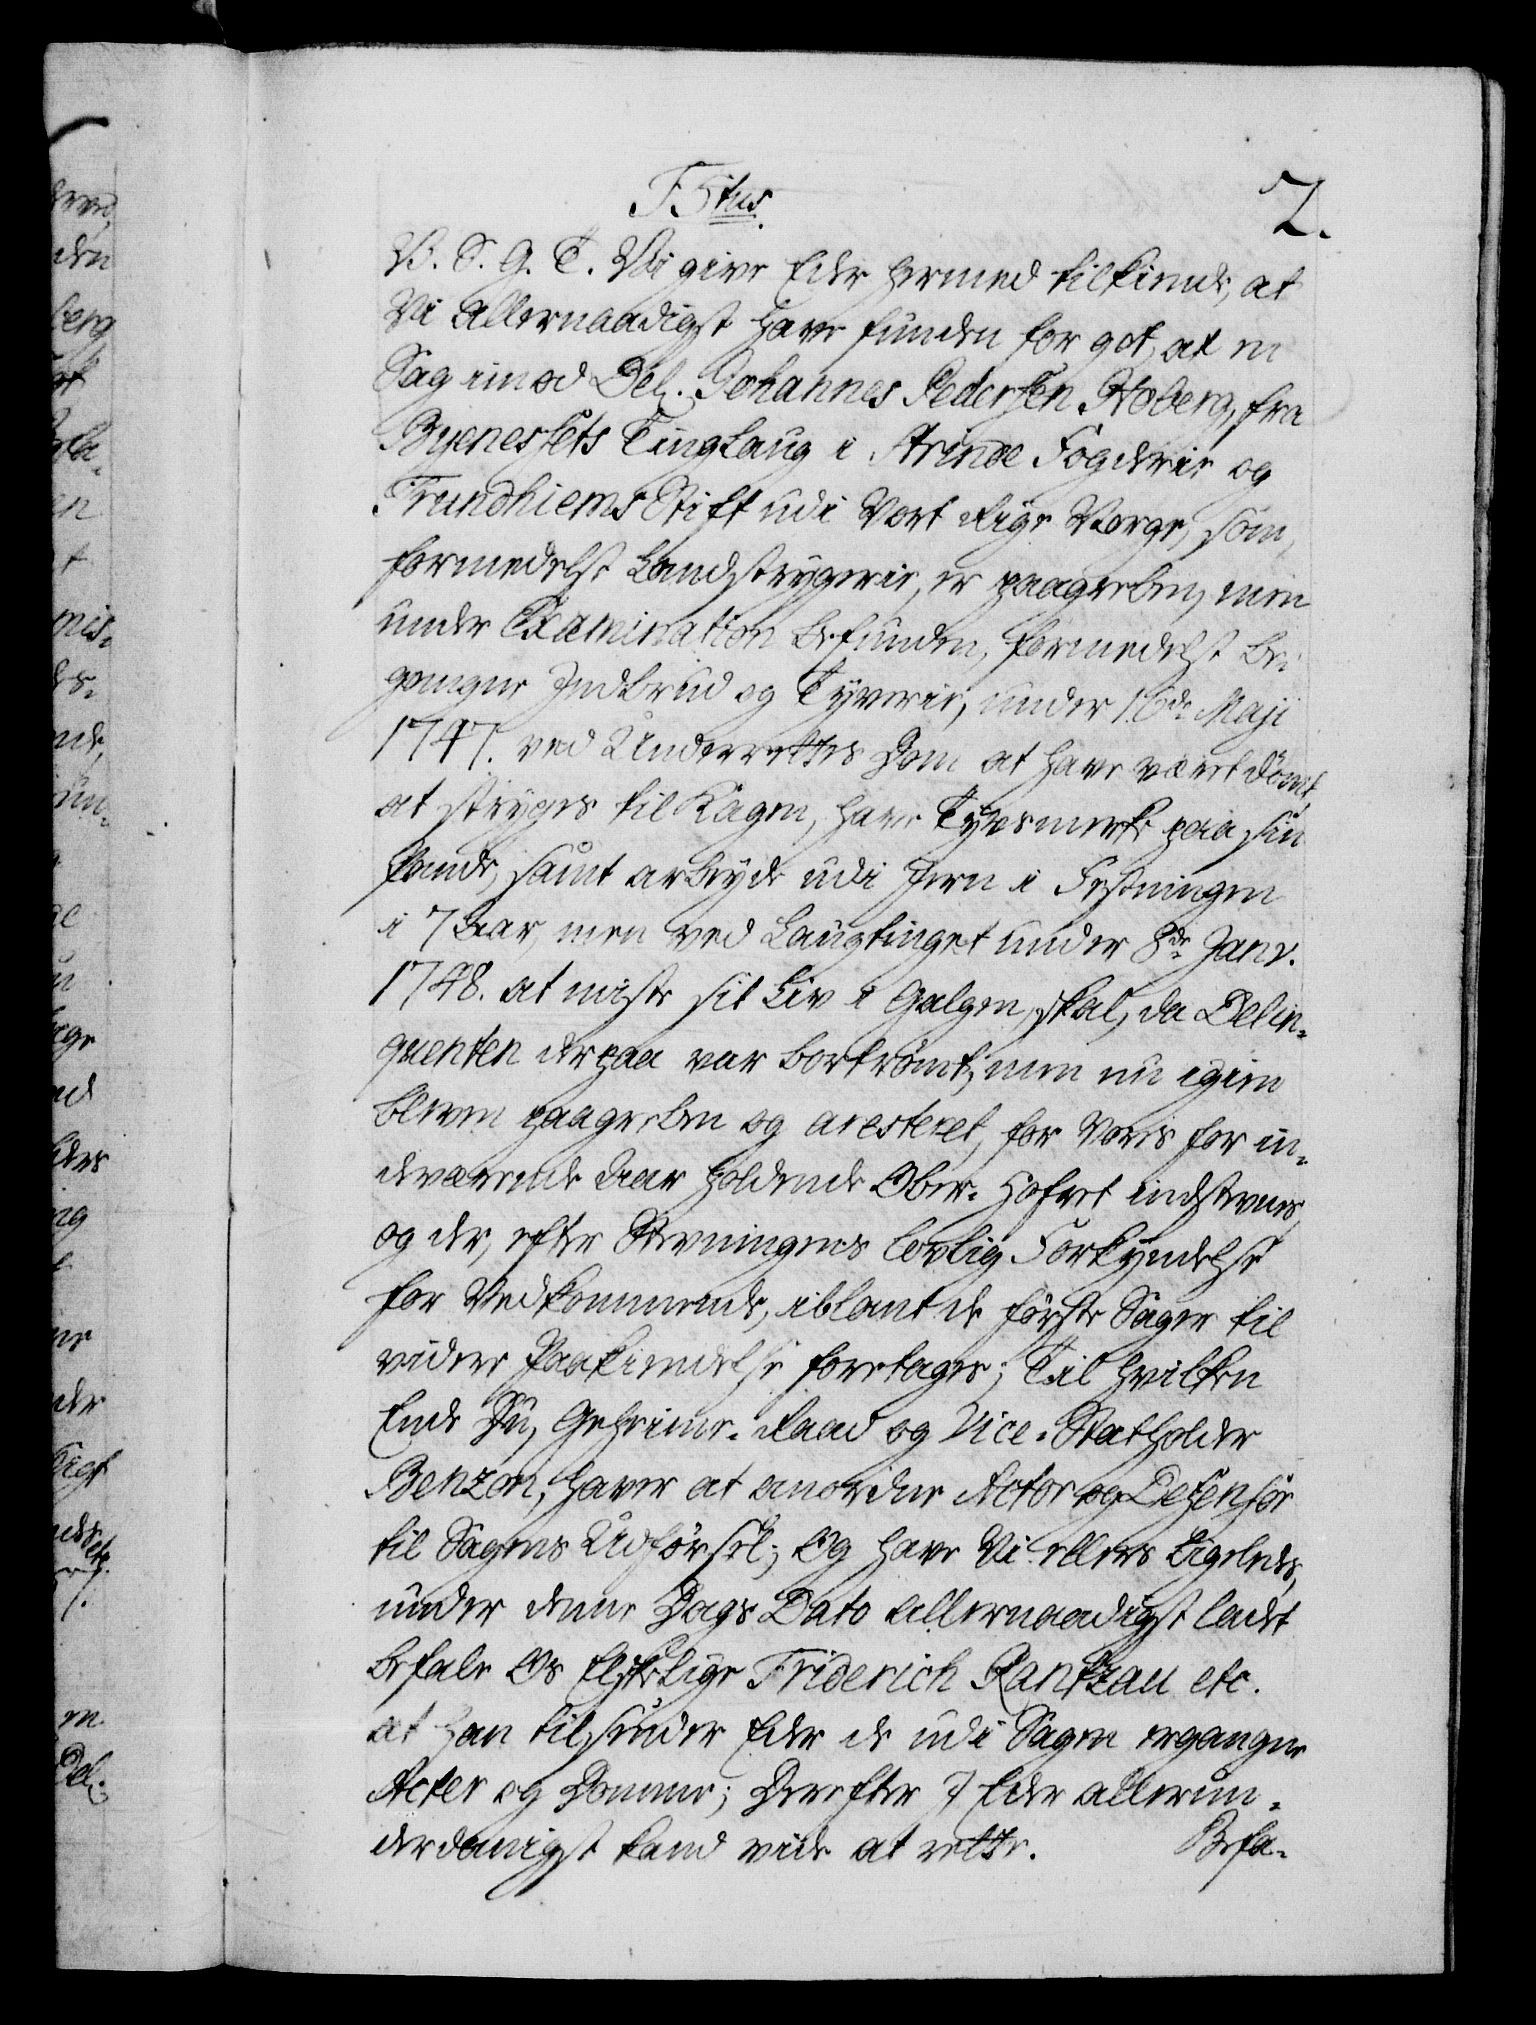 F5tus. 2.
V. S. G. T. Vi give Eder hermed tilkiende, at
Vi allernaadigst have funden for got, at en
Sag imod Del. Johannes Pedersen Hoberg, fra
Byenessets Tinglaug i Strinde Fogderie og
Trundhiems Stift udi Vort Rige Norge, som,
formedelst Landstrygerie, er paagreben, men
under Examination befunden, formedelst be-
gangne Indbrud og Tyverie, under 16de Maji
1747. ved Underrettes Dom at have været dömt,
at stryges til Kagen, have Tyvsmerke paa sin
Pande, samt arbeyde udi Jern i Festningen
i 7 Aar, men ved Laugtinget under 8de Janv.
1748. at miste sit Liv i Galgen, skal, da Delin-
quenten derpaa var bortrömt, men nu igien
bleven paagreben og aresteret, for Vores for in-
deværende Aar holdende Ober-Hofret indstevnes,
og der, efter Stevningens lovlig Forkyndelse
for Vedkommende, iblant de förste Sager til
videre Paakiendelse foretages; Til hvilken
Ende Du, Geheime-Raad og Vice-Statholder
Benzon, haver at anordne Actor og Defensor
til Sagens Udförsel; Og have Vi ellers ligeledes,
under denne Dags Dato allernaadigst ladet
befale Os Elskelige Friderich Rantzau etc.
at han tilsender Eder de udi Sagen ergangne
Acter og Domme; Derefter I Eder allerun-
derdanigst kand vide at rette. Befa-